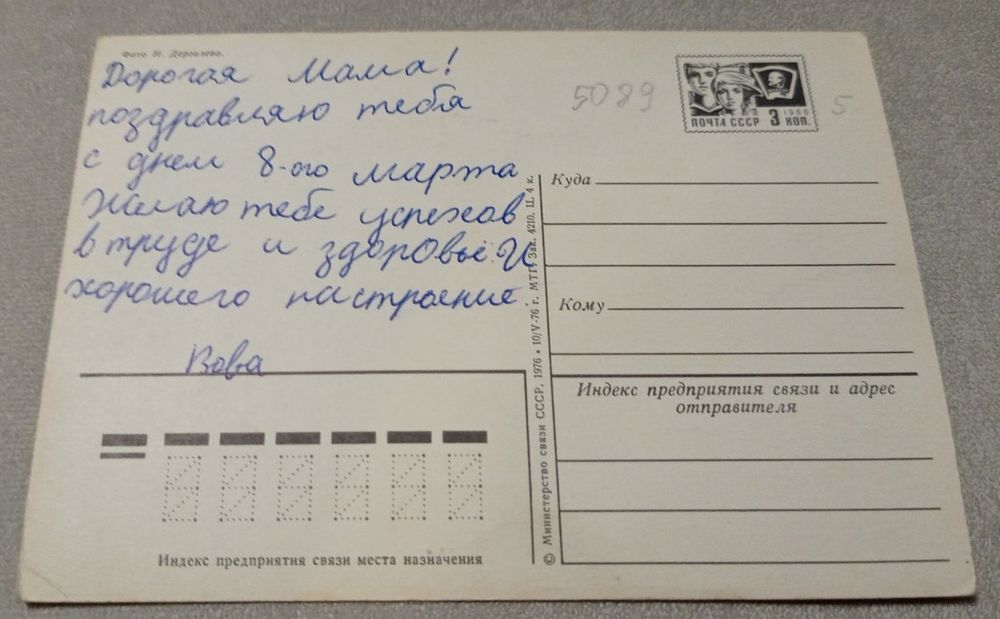 Фото И. Дергилева.
Дорогая Мама!
поздравляю тебя
с днем 8-ого марта
Желаю тебе успехов
в труде и здоровье. И
хорошего настроение
Вова
5089
5
ПОЧТА СССР 3 КОП.
1966
Куда
Кому
Индекс предприятия связи и адрес
отправителя
© Министерство связи СССР, 1976 • 10/V-76 г. МТГ. Зак. 4210. Ц. 4 к.
Индекс предприятия связи места назначения